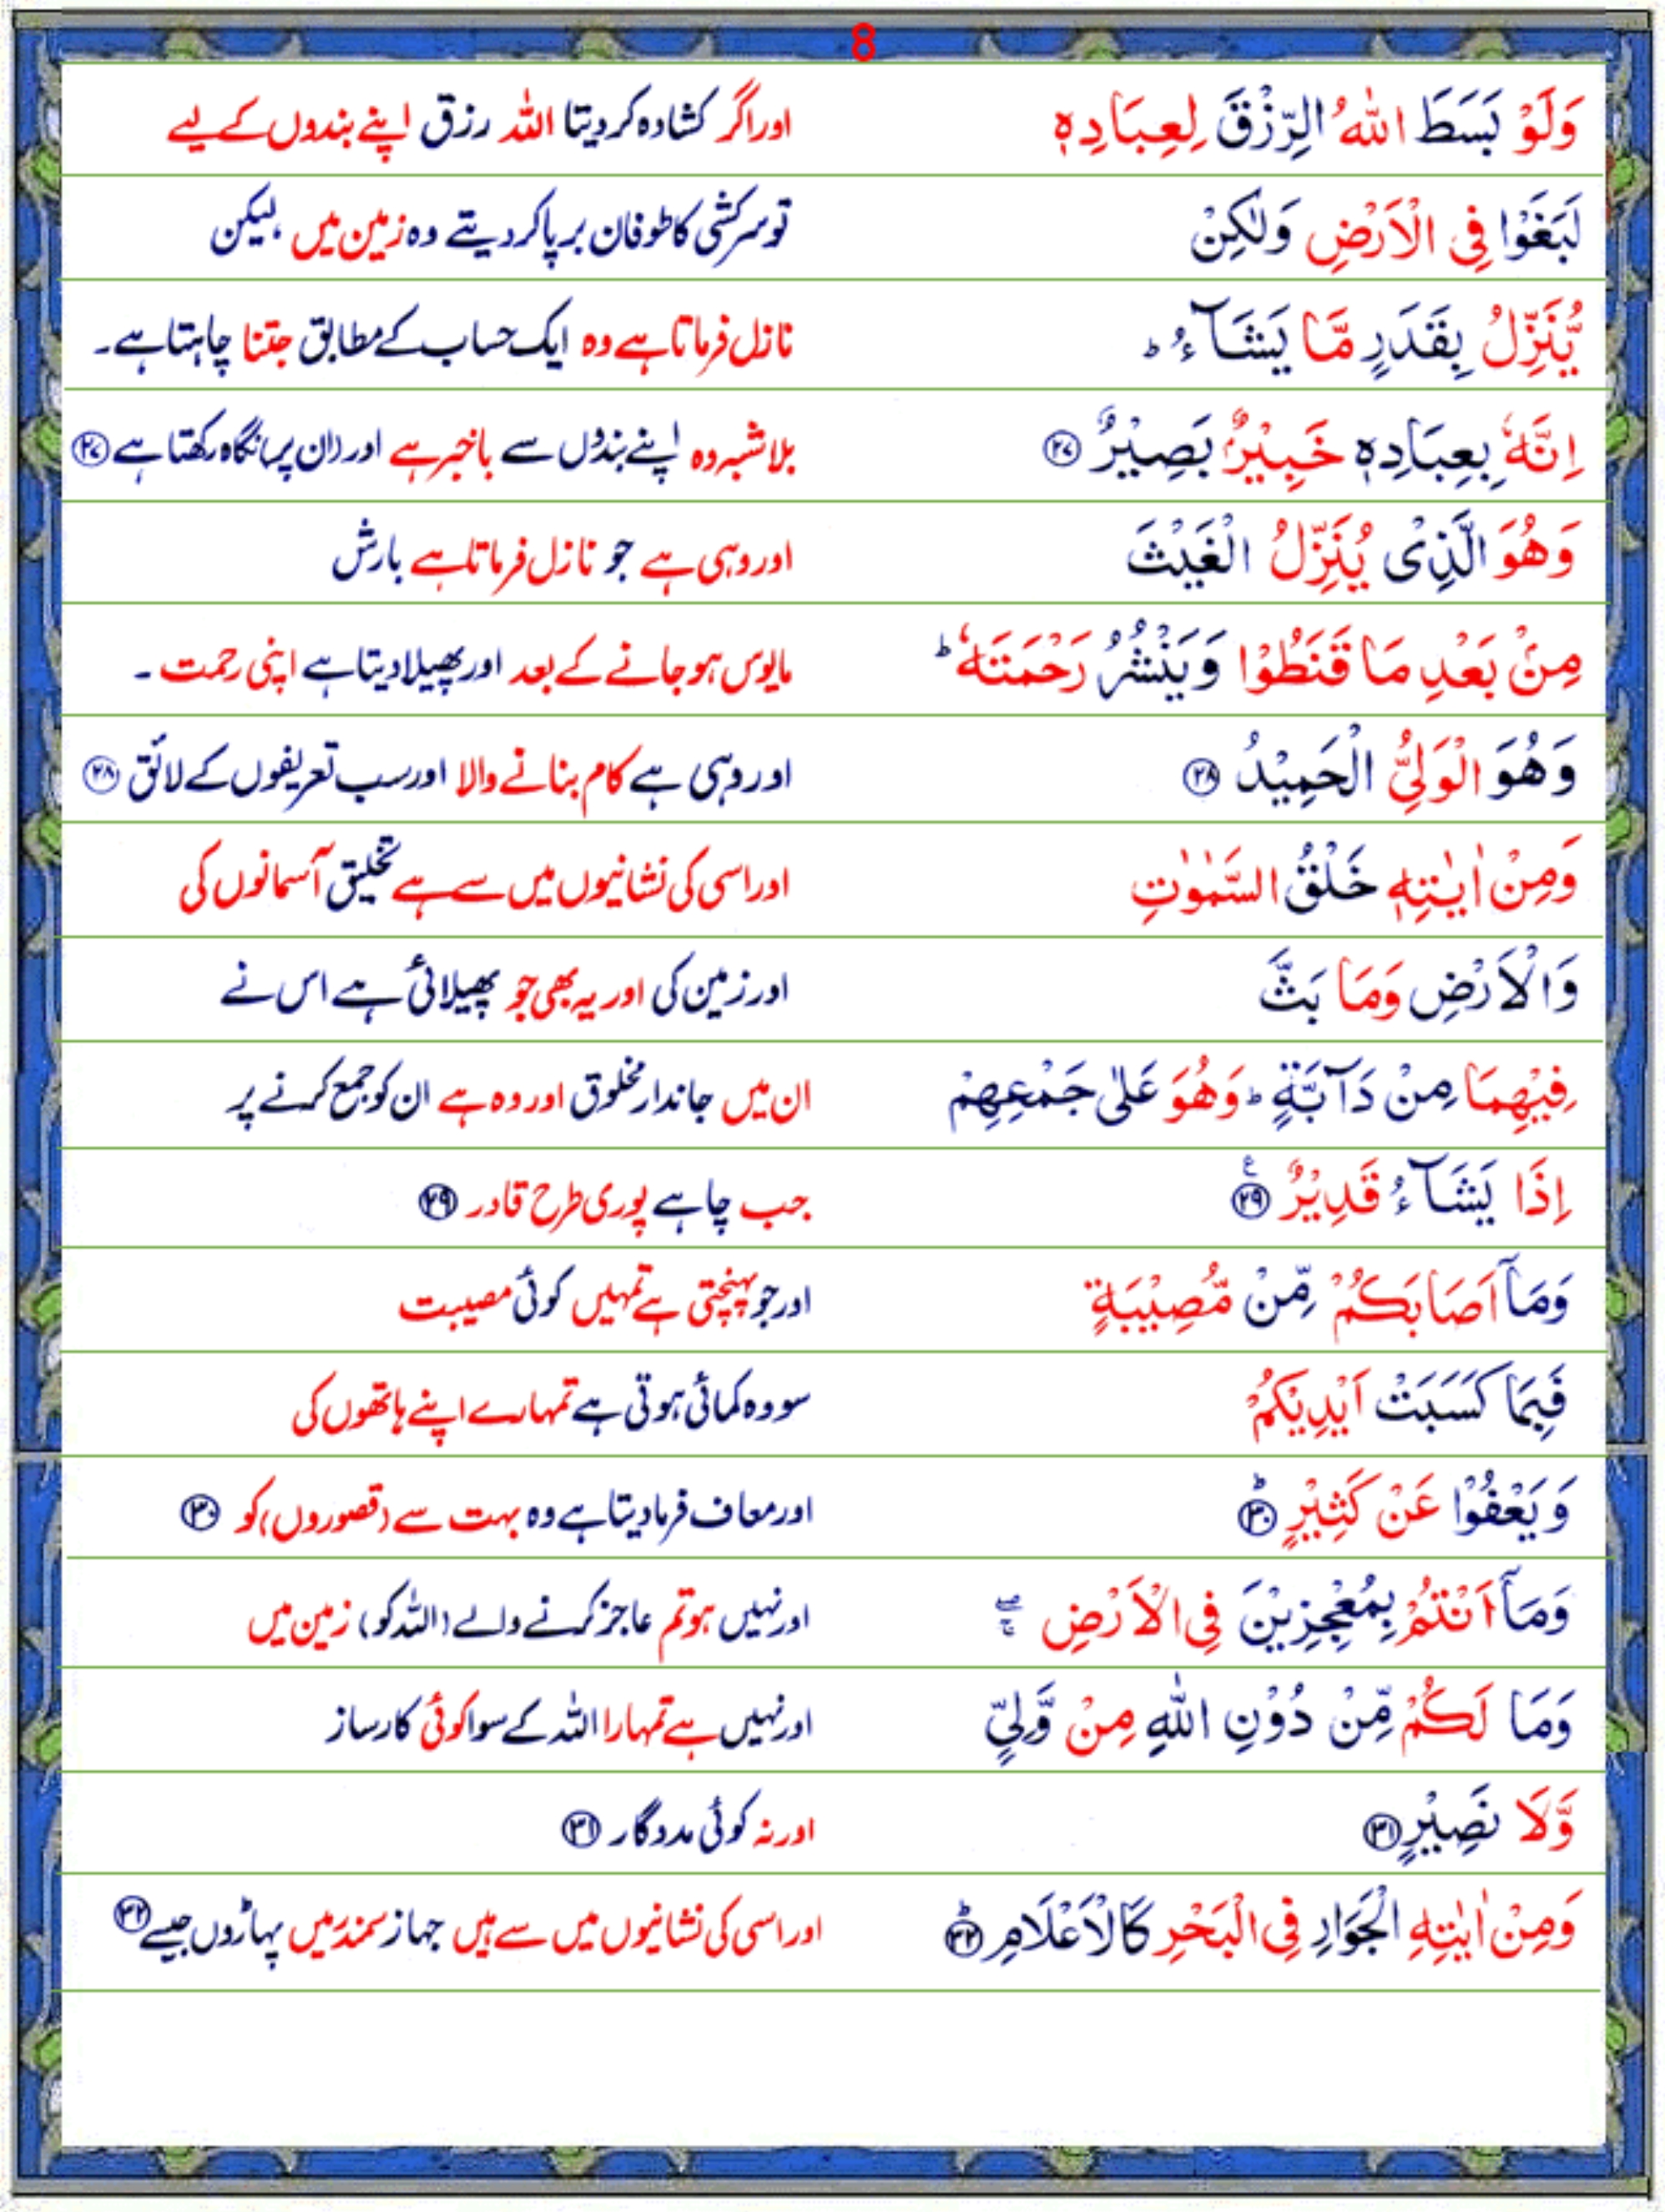 8
وَلَوْ بَسَطَ اللّٰهُ الرِّزْقَ لِعِبَادِهٖ اور اگر کشادہ کر دیتا اللہ رزق اپنے بندوں کے لیے
لَبَغَوْا فِی الْاَرْضِ وَلٰكِنْ تو سرکشی کا طوفان برپا کر دیتے وہ زمین میں، لیکن
یُّنَزِّلُ بِقَدَرٍ مَّا یَشَآءُ ؕ نازل فرماتا ہے وہ ایک حساب کے مطابق جتنا چاہتا ہے۔
اِنَّهٗ بِعِبَادِهٖ خَبِیْرٌۢ بَصِیْرٌ ۲۷ بلاشبہ وہ اپنے بندوں سے باخبر ہے اور (ان پر) نگاہ رکھتا ہے ۲۷
وَهُوَ الَّذِیْ یُنَزِّلُ الْغَیْثَ اور وہی ہے جو نازل فرماتا ہے بارش
مِنْۢ بَعْدِ مَا قَنَطُوْا وَیَنْشُرُ رَحْمَتَهٗ ؕ مایوس ہو جانے کے بعد اور پھیلا دیتا ہے اپنی رحمت ۔
وَهُوَ الْوَلِیُّ الْحَمِیْدُ ۲۸ اور وہی ہے کام بنانے والا اور سب تعریفوں کے لائق ۲۸
وَمِنْ اٰیٰتِهٖ خَلْقُ السَّمٰوٰتِ اور اسی کی نشانیوں میں سے ہے تخلیق آسمانوں کی
وَالْاَرْضِ وَمَا بَثَّ اور زمین کی اور یہ بھی جو پھیلائی ہے اس نے
فِیْهِمَا مِنْ دَآبَّةٍ ؕ وَهُوَ عَلٰی جَمْعِهِمْ ان میں جاندار مخلوق اور وہ ہے ان کو جمع کرنے پر
اِذَا یَشَآءُ قَدِیْرٌ ۲۹ ع جب چاہے پوری طرح قادر ۲۹
وَمَاۤ اَصَابَكُمْ مِّنْ مُّصِیْبَةٍ اور جو پہنچتی ہے تمہیں کوئی مصیبت
فَبِمَا كَسَبَتْ اَیْدِیْكُمْ سو وہ کمائی ہوتی ہے تمہارے اپنے ہاتھوں کی
وَیَعْفُوْا عَنْ كَثِیْرٍ ؕ ۳۰ اور معاف فرما دیتا ہے وہ بہت سے (قصوروں) کو ۳۰
وَمَاۤ اَنْتُمْ بِمُعْجِزِیْنَ فِی الْاَرْضِ ۖۚ اور نہیں ہو تم عاجز کرنے والے (اللہ کو) زمین میں
وَمَا لَكُمْ مِّنْ دُوْنِ اللّٰهِ مِنْ وَّلِیٍّ اور نہیں ہے تمہارا اللہ کے سوا کوئی کارساز
وَّلَا نَصِیْرٍ ۳۱ اور نہ کوئی مددگار ۳۱
وَمِنْ اٰیٰتِهِ الْجَوَارِ فِی الْبَحْرِ كَالْاَعْلَامِ ؕ ۳۲ اور اسی کی نشانیوں میں سے ہیں جہاز سمندر میں پہاڑوں جیسے ۳۲